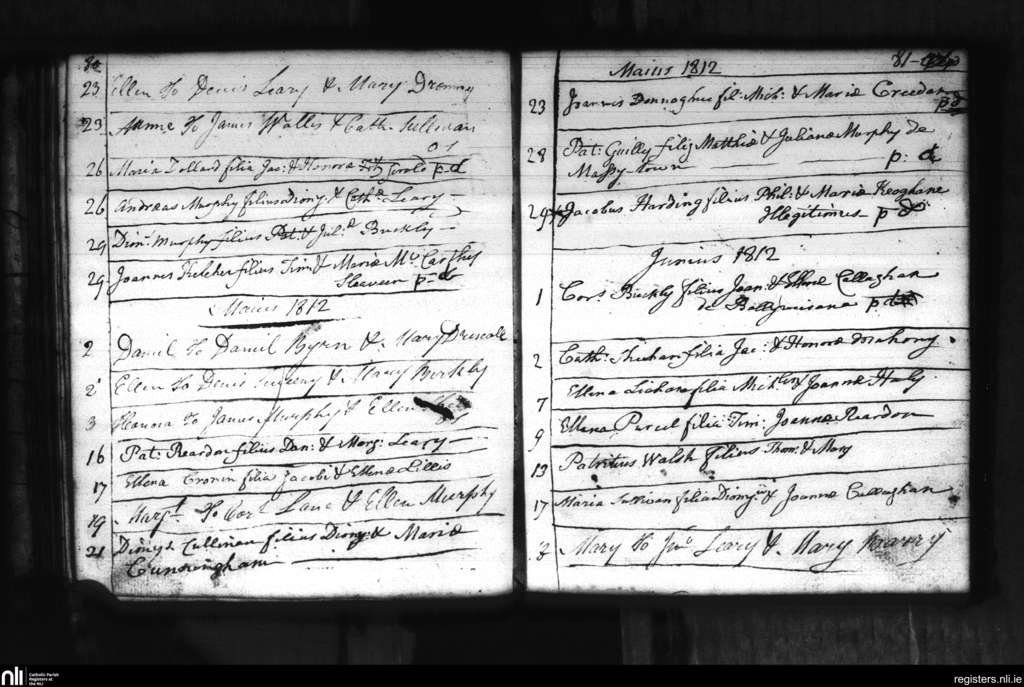 80
23 Ellen To Denis Leary & Mary Dromy
23 Anne To James Wallis & Cath: Sullivan
26 Maria Tollard filia Jac: & Honora Fitz Gerold p-d
26 Andreas Murphy filius Diony: & Cath: Leary
29 Dion: Murphy filius Pat: & Jul: Buckly
29 Joannes Kelcher filius Tim: & Mariæ Mc Carthy
p-d
Maius 1812
2 Daniel To Daniel Byrn & Mary Driscoll
2 Ellen To Denis & Mary Buckly
3 To James Murphy & Ellen
16 Pat: Reardon filius Dan: & Marg: Leary
17 Ellena Cronin filia Jacobi & Ellenæ Lillis
19 Margt To Corl Lane & Ellen Murphy
21 Dionys Cullinan filius Diony: & Mariæ
Cunningham
Maius 1812 81
23 Joannes Donnoghue fil: Mich: & Mariæ Creedan
p-d
28 Pat: Guilly filij Matthiæ & Julianæ Murphy de
Massy town p: d
29 Jacobus Harding filius Phil: & Mariæ Keoghane
Illegitimus p d
Junius 1812
1 Cors Buckly filius Joan: & Callaghan
de p d
2 Cath: Shichan filia Jac: & Honoræ Mahony
7 Ellena Lichane filia Mich: & Joannæ Haly
9 Ellena Purcel filia Tim: Joannæ Reardon
13 Patritius Walsh filius Thom: & Mary
17 Maria Sullivan filia Dionysii & Joannæ Callaghan
Mary To Jno Leary & Mary
nli
Catholic Parish
Registers at
the NLI
registers.nli.ie